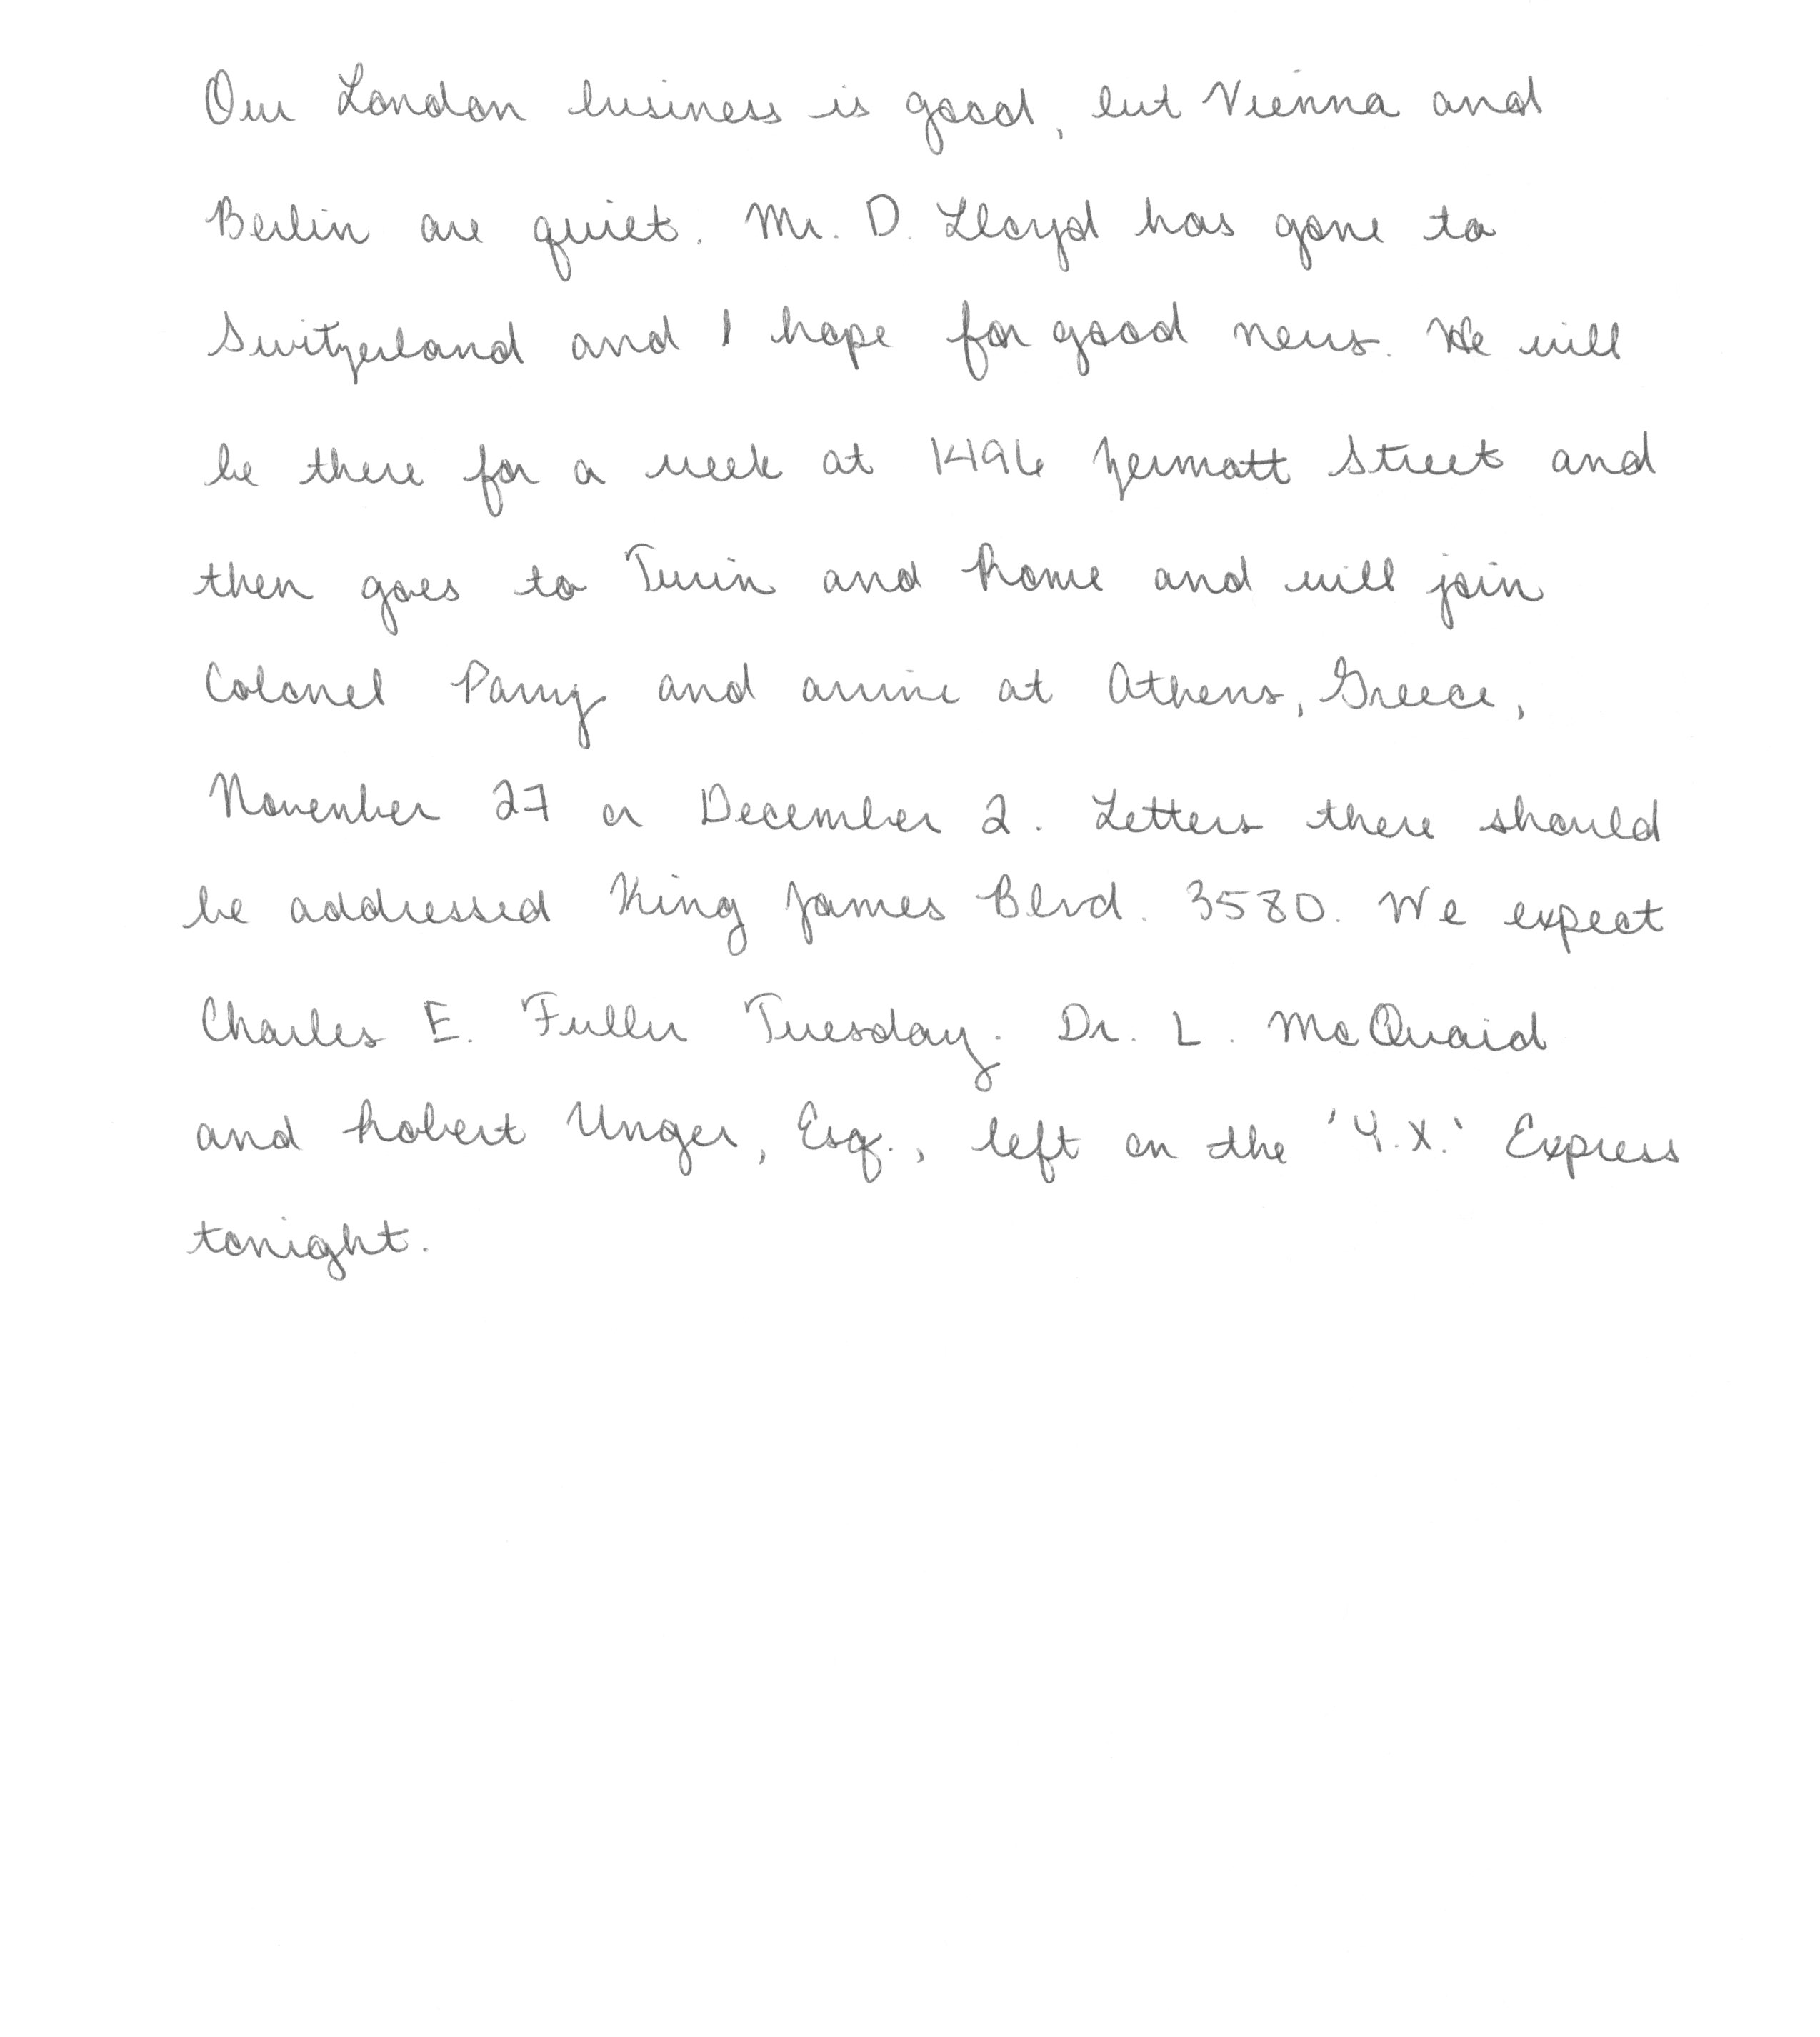 Our London business is good, but Vienna and
Berlin are quiet. Mr. D. Lloyd has gone to
Switzerland and I hope for good news. He will
be there for a week at 1496 Zermatt Street and
then goes to Turin and Rome and will join
Colonel Parry and arrive at Athens, Greece,
November 27 or December 2. Letters there should
be addressed King James Blvd. 3580. We expect
Charles E. Fuller Tuesday. Dr. L. McQuaid
and Robert Unger, Esq., left on the 'Y.X.' Express
tonight.